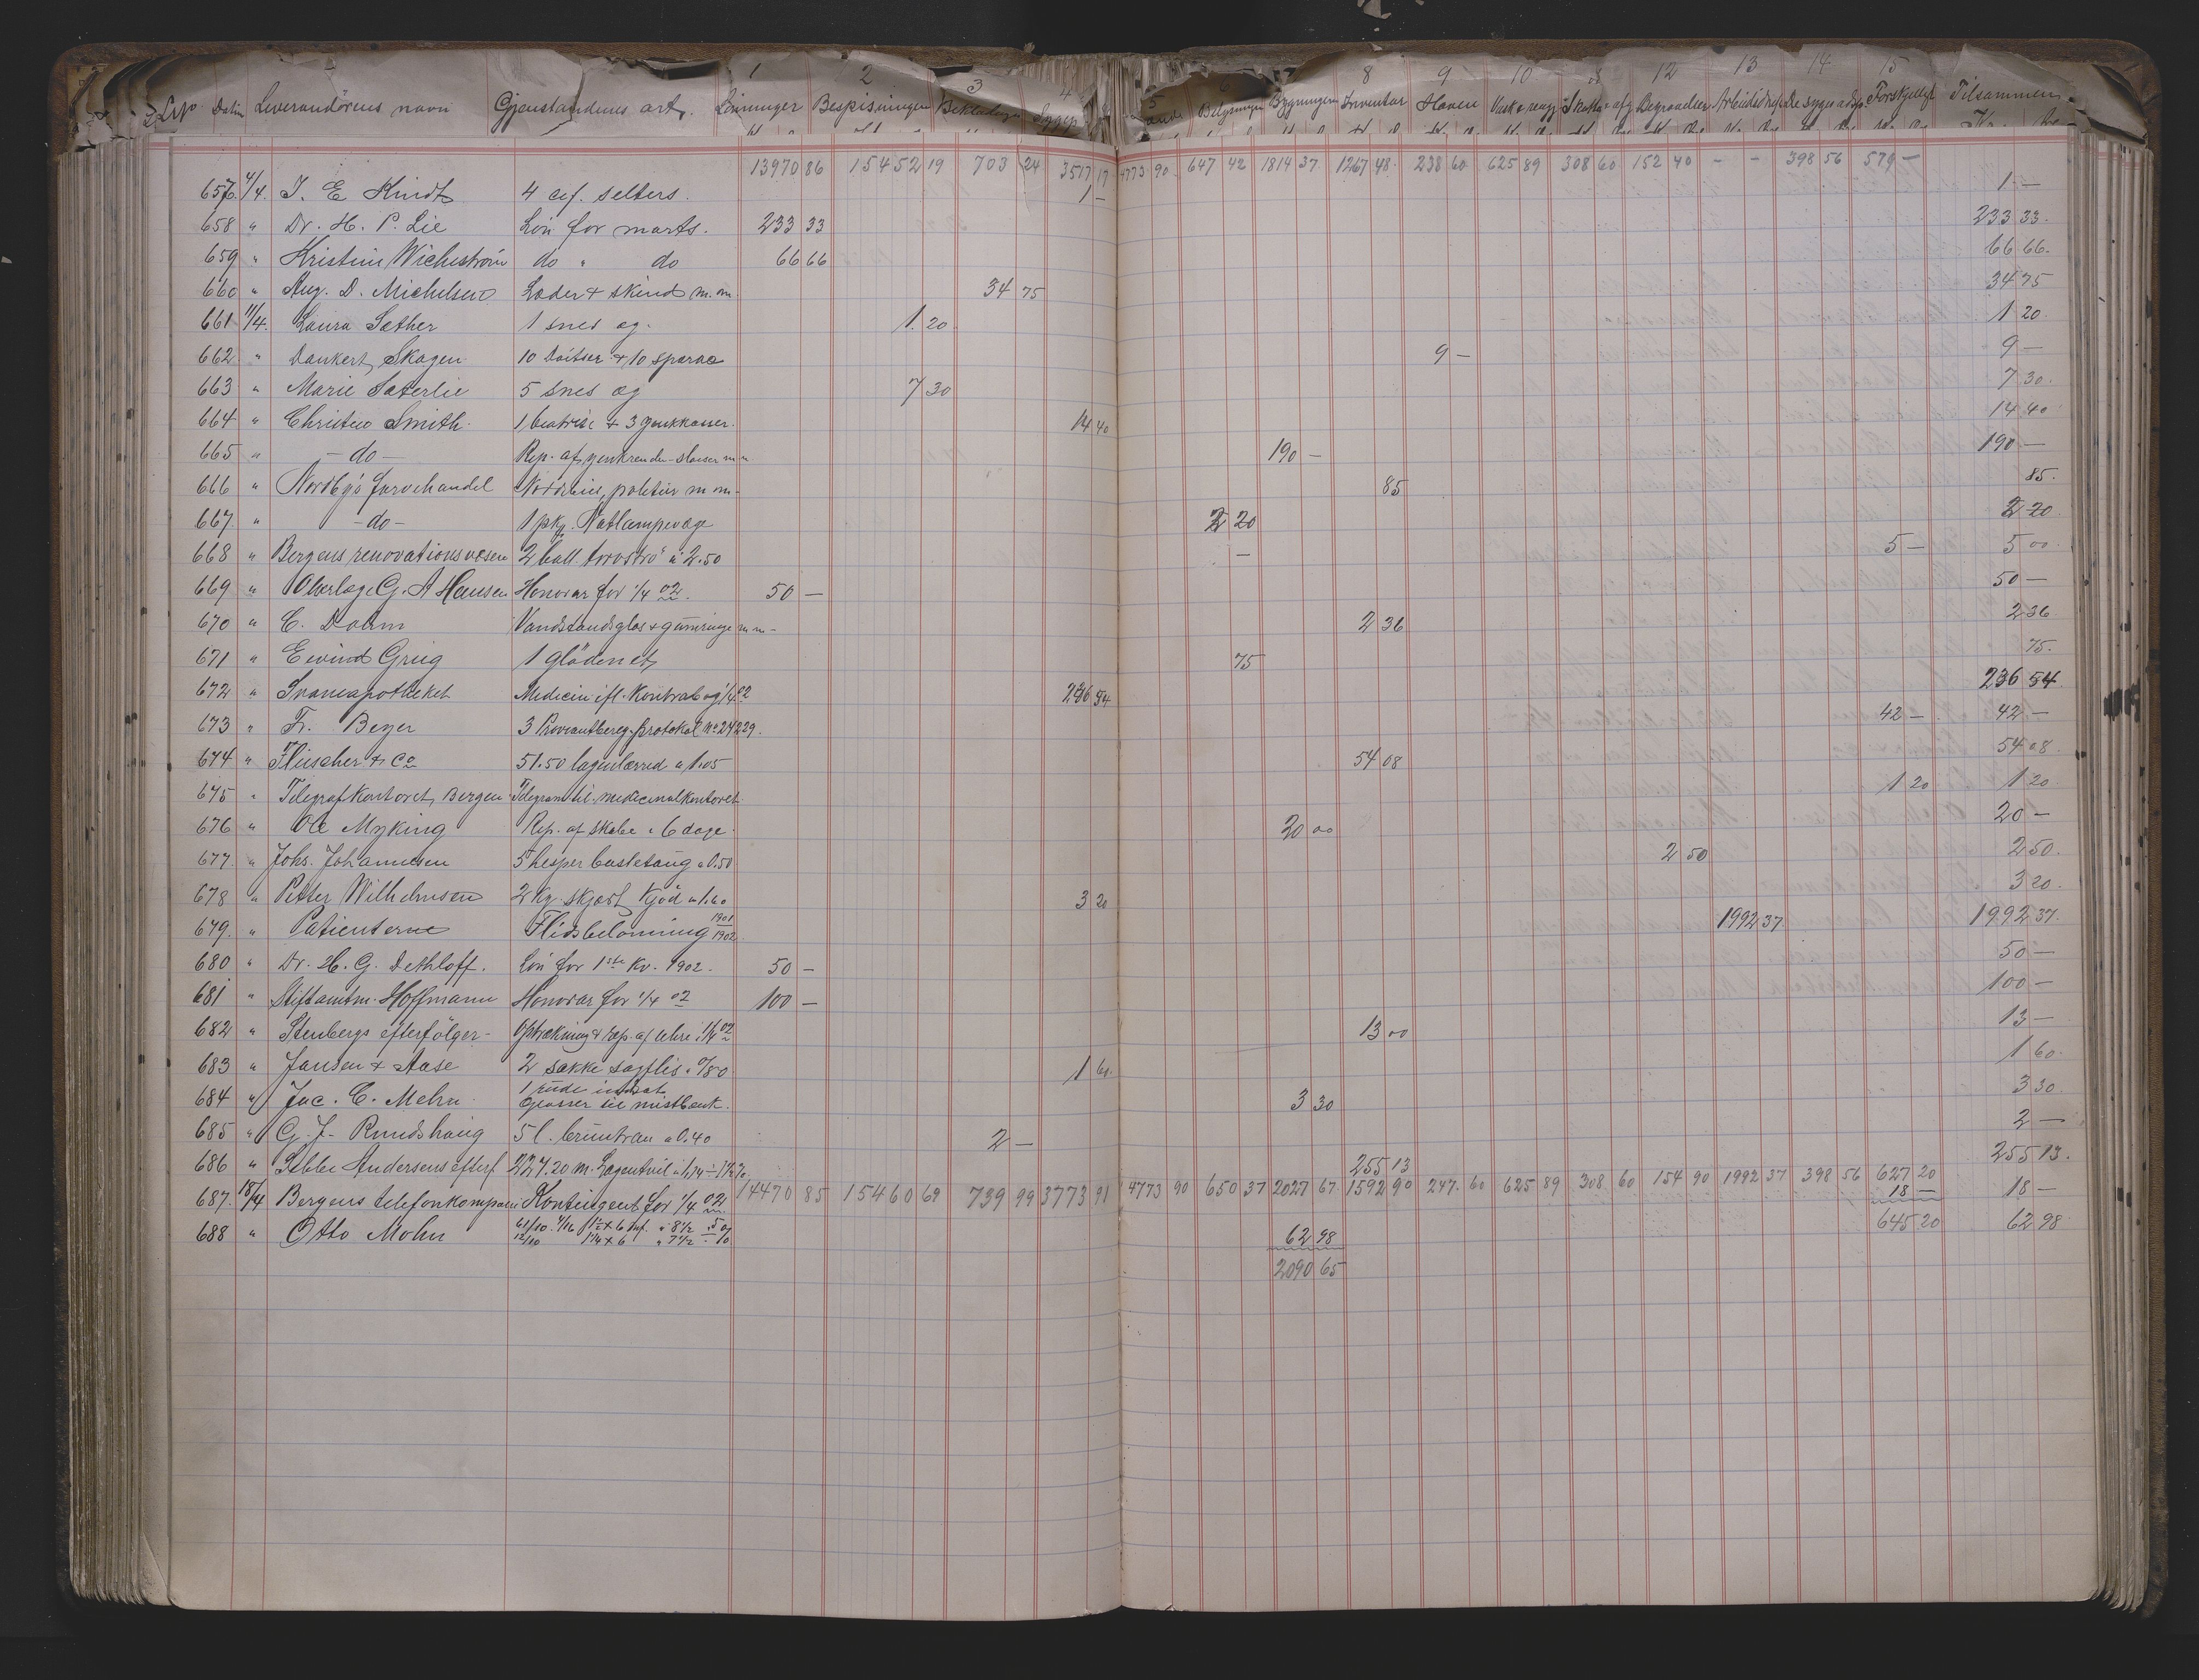 1 2 3 4 5 6 8 9 10 12 13 14 15
Datum Leverandörens navn Gjenstandens art. Lönninger Bespisningen Beklædningen Belysningen Bygningen Inventar Haven Skatter afg. Begravelser De syges Forskjelligt Tilsammen
13970 86 15452 19 703 24 3517 17 4773 90 647 42 1814 37 1267 48 238 60 625 89 308 60 152 40 - - 398 56 579 -
657 4/4. J. E. Kindt 4 selters. 1 - 1 -
658 " Dr. H. P. Lie Lön for marts. 233 33 233 33.
659 " Kristine Wichström do " do 66 66 66 66.
660 " Aug. D. Michelsen Læder + skind m.m. 34 75 34 75
661 11/4. Laura Sæther 1 snes æg. 1. 20 1 20.
662 " Dankert Skagen 10 + 10 9 - 9 -
663 " Marie Sæterlie 5 snes æg 7 30 7 30.
664 " Christen Smith 1 + 3 14 40 14 40
665 " - do - Rep. af m m 190 - 190 -
666 " Nordby's farvehandel politur m m - 85 85.
667. " - do - 1 pkg. Natlampevæge 2 20 2 20.
668 " Bergens renovationsvæsen 2 ball. torvströ a 2.50 - 5 - 5 00.
669 " Overlæge G. A Hansen Honorar for 1/4 02. 50 - 50 -
670 " C. Dahm Vandstandsglas + gumringe m m - 2 36 2 36
671 " Eivind Grieg 1 glödenet 75 75.
672 " Svaneapotheket Medicin ifl. Kontrabog 1/4 02 236 54 236 54
673 " Fr. Beyer 3 Proviantbereg. protokol No 24229. 42 - 42 -
674 " Fleischer & Co 51.50 lagenlærred a 1.05 54 08 54 08
675 " Telegrafkontoret, Bergen Telegram til medicinalkontoret. 1 20 1 20
676 " Ole Myking Rep. af skabe " 6 dage. 20 00 20 -
677. " Johs. Johannesen 5 a 0.50 2 50 2 50.
678 " Petter Wilhelmsen 2 kg. kjöd a 1.60 3 20 3 20.
679. " Patienterne Flidsbelönning 1901 1902. 1992 37. 1992 37.
680 " Dr. H. G. Dethloff. Lön for 1ste Kv. 1902. 50 - 50 -
681 " Stiftamtm. Hoffmann Honorar for 1/4 02 100 - 100 -
682 " Stenbergs efterfölger - Optrækning & rep. af uhre 1/4 02 13 00 13 -
683 " Jansen & Aase 2 sække sagflis a 0/80 1 60. 1 60.
684 " Jac. C. Mehn 1 rude indsat. Glasser til mistbænk. 3 30 3 30
685 " G. J. Rundshaug 5 l. bruntran a 0.40 2 - 2 -
686 " Andersens efterf. 227.20 m. 255 13 255 13.
14470 85 15460 69 739 99 3773 91 4773 90 650 37 2027 67. 1592 90 247. 60 625 89 308 60 154 90 1992 37 398 56 627 20
687. 18/4 Bergens telefonkompani Kontingent for 1/4 02 18 - 18 -
645 20
688 " Otto Mohn 62 98 62 98
2090 65